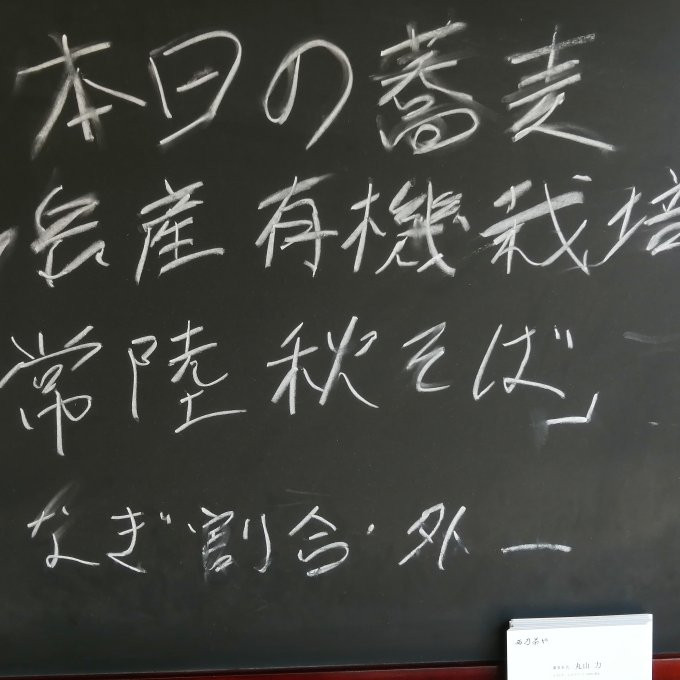 本日の蕎麦
産 有機栽培
常陸秋そば」
なぎ割合・外一
丸山 力